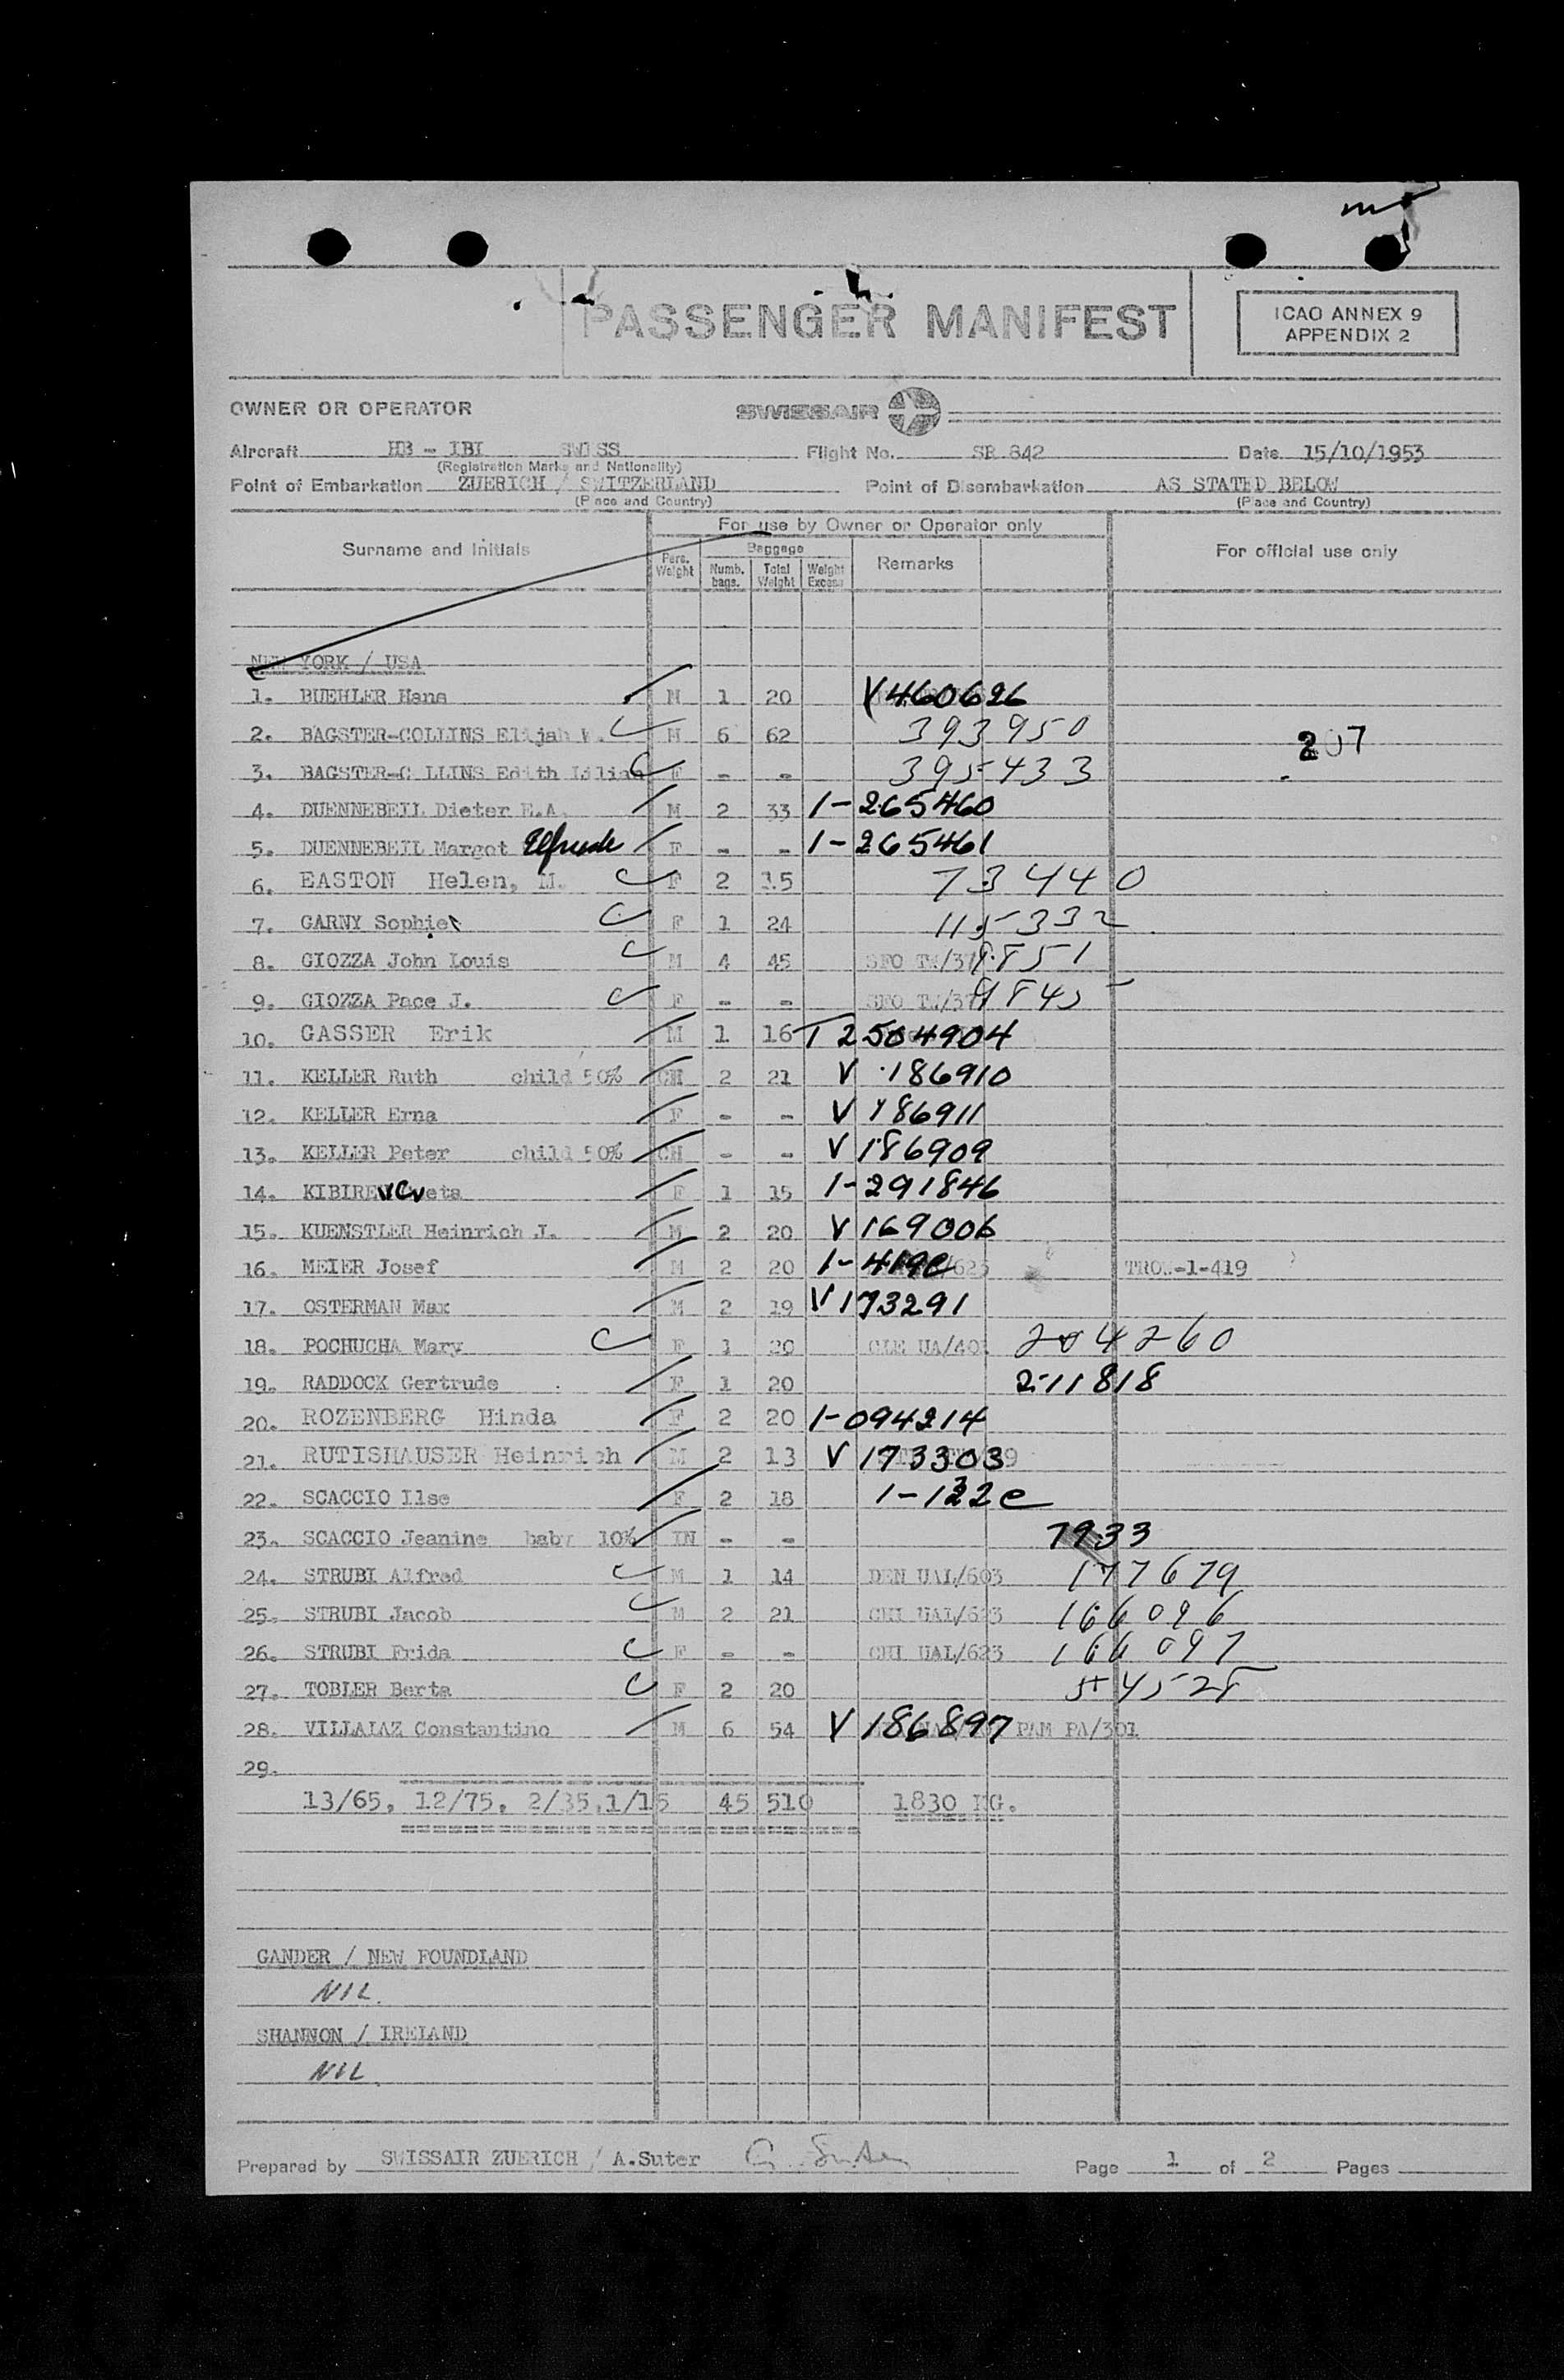 PASSENGER MANIFEST
ICAO ANNEX 9
APPENDIX 2
OWNER OR OPERATOR SWISSAIR
Aircraft HB - IBI SWISS Flight No. SR 842 Date 15/10/1953
(Registration Marks and Nationality)
Point of Embarkation ZUERICH / SWITZERLAND Point of Disembarkation AS STATED BELOW
(Place and Country) (Place and Country)
For use by Owner or Operator only
Surname and Initials Pers. Weight Baggage Numb. bags. Total Weight Weight Excess Remarks For official use only
NEW YORK / USA
1. BUEHLER Hans M 1 20 V 460626
2. BAGSTER-COLLINS Elijah W. M 6 62 393950 207
3. BAGSTER-COLLINS Edith Lilian F - - 395433
4. DUENNEBEIL Dieter E.A. M 2 33 1-265460
5. DUENNEBEIL Margot Elfriede F - - 1-265461
6. EASTON Helen, M. F 2 15 73440
7. GARNY Sophie F 1 24 115332
8. GIOZZA John Louis M 4 45 SFO TW/37 9851
9. GIOZZA Pace J. F - - SFO TW/37 9845
10. GASSER Erik M 1 16 T 2504904
11. KELLER Ruth child 50% CH 2 21 V 186910
12. KELLER Erna F - - V 186911
13. KELLER Peter child 50% CH - - V 186909
14. F 1 15 1-291846
15. KUENSTLER Heinrich J. M 2 20 V 169006
16. MEIER Josef M 2 20 1-419e /623 TROM-1-419
17. OSTERMAN Max M 2 19 V 173291
18. POCHUCHA Mary F 1 20 CLE UA/401 204260
19. RADDOCK Gertrude F 1 20 211818
20. ROZENBERG Hinda F 2 20 1-094214
21. RUTISHAUSER Heinrich M 2 13 V 173303
22. SCACCIO Ilse F 2 18
23. SCACCIO Jeanine baby 10% IN - - 7933
24. STRUBI Alfred M 1 14 DEN UAL/603 177679
25. STRUBI Jacob M 2 21 CHI UAL/623 166096
26. STRUBI Frida F - - CHI UAL/623 166097
27. TOBLER Berta F 2 20
28. VILLALAZ Constantino M 6 54 V 186897 PAM PA/301
29.
13/65, 12/75, 2/35,1/15 45 510 1830 KG.
GANDER / NEW FOUNDLAND
NIL.
SHANNON / IRELAND
NIL.
Prepared by SWISSAIR ZUERICH / A.Suter A. Suter Page 1 of 2 Pages